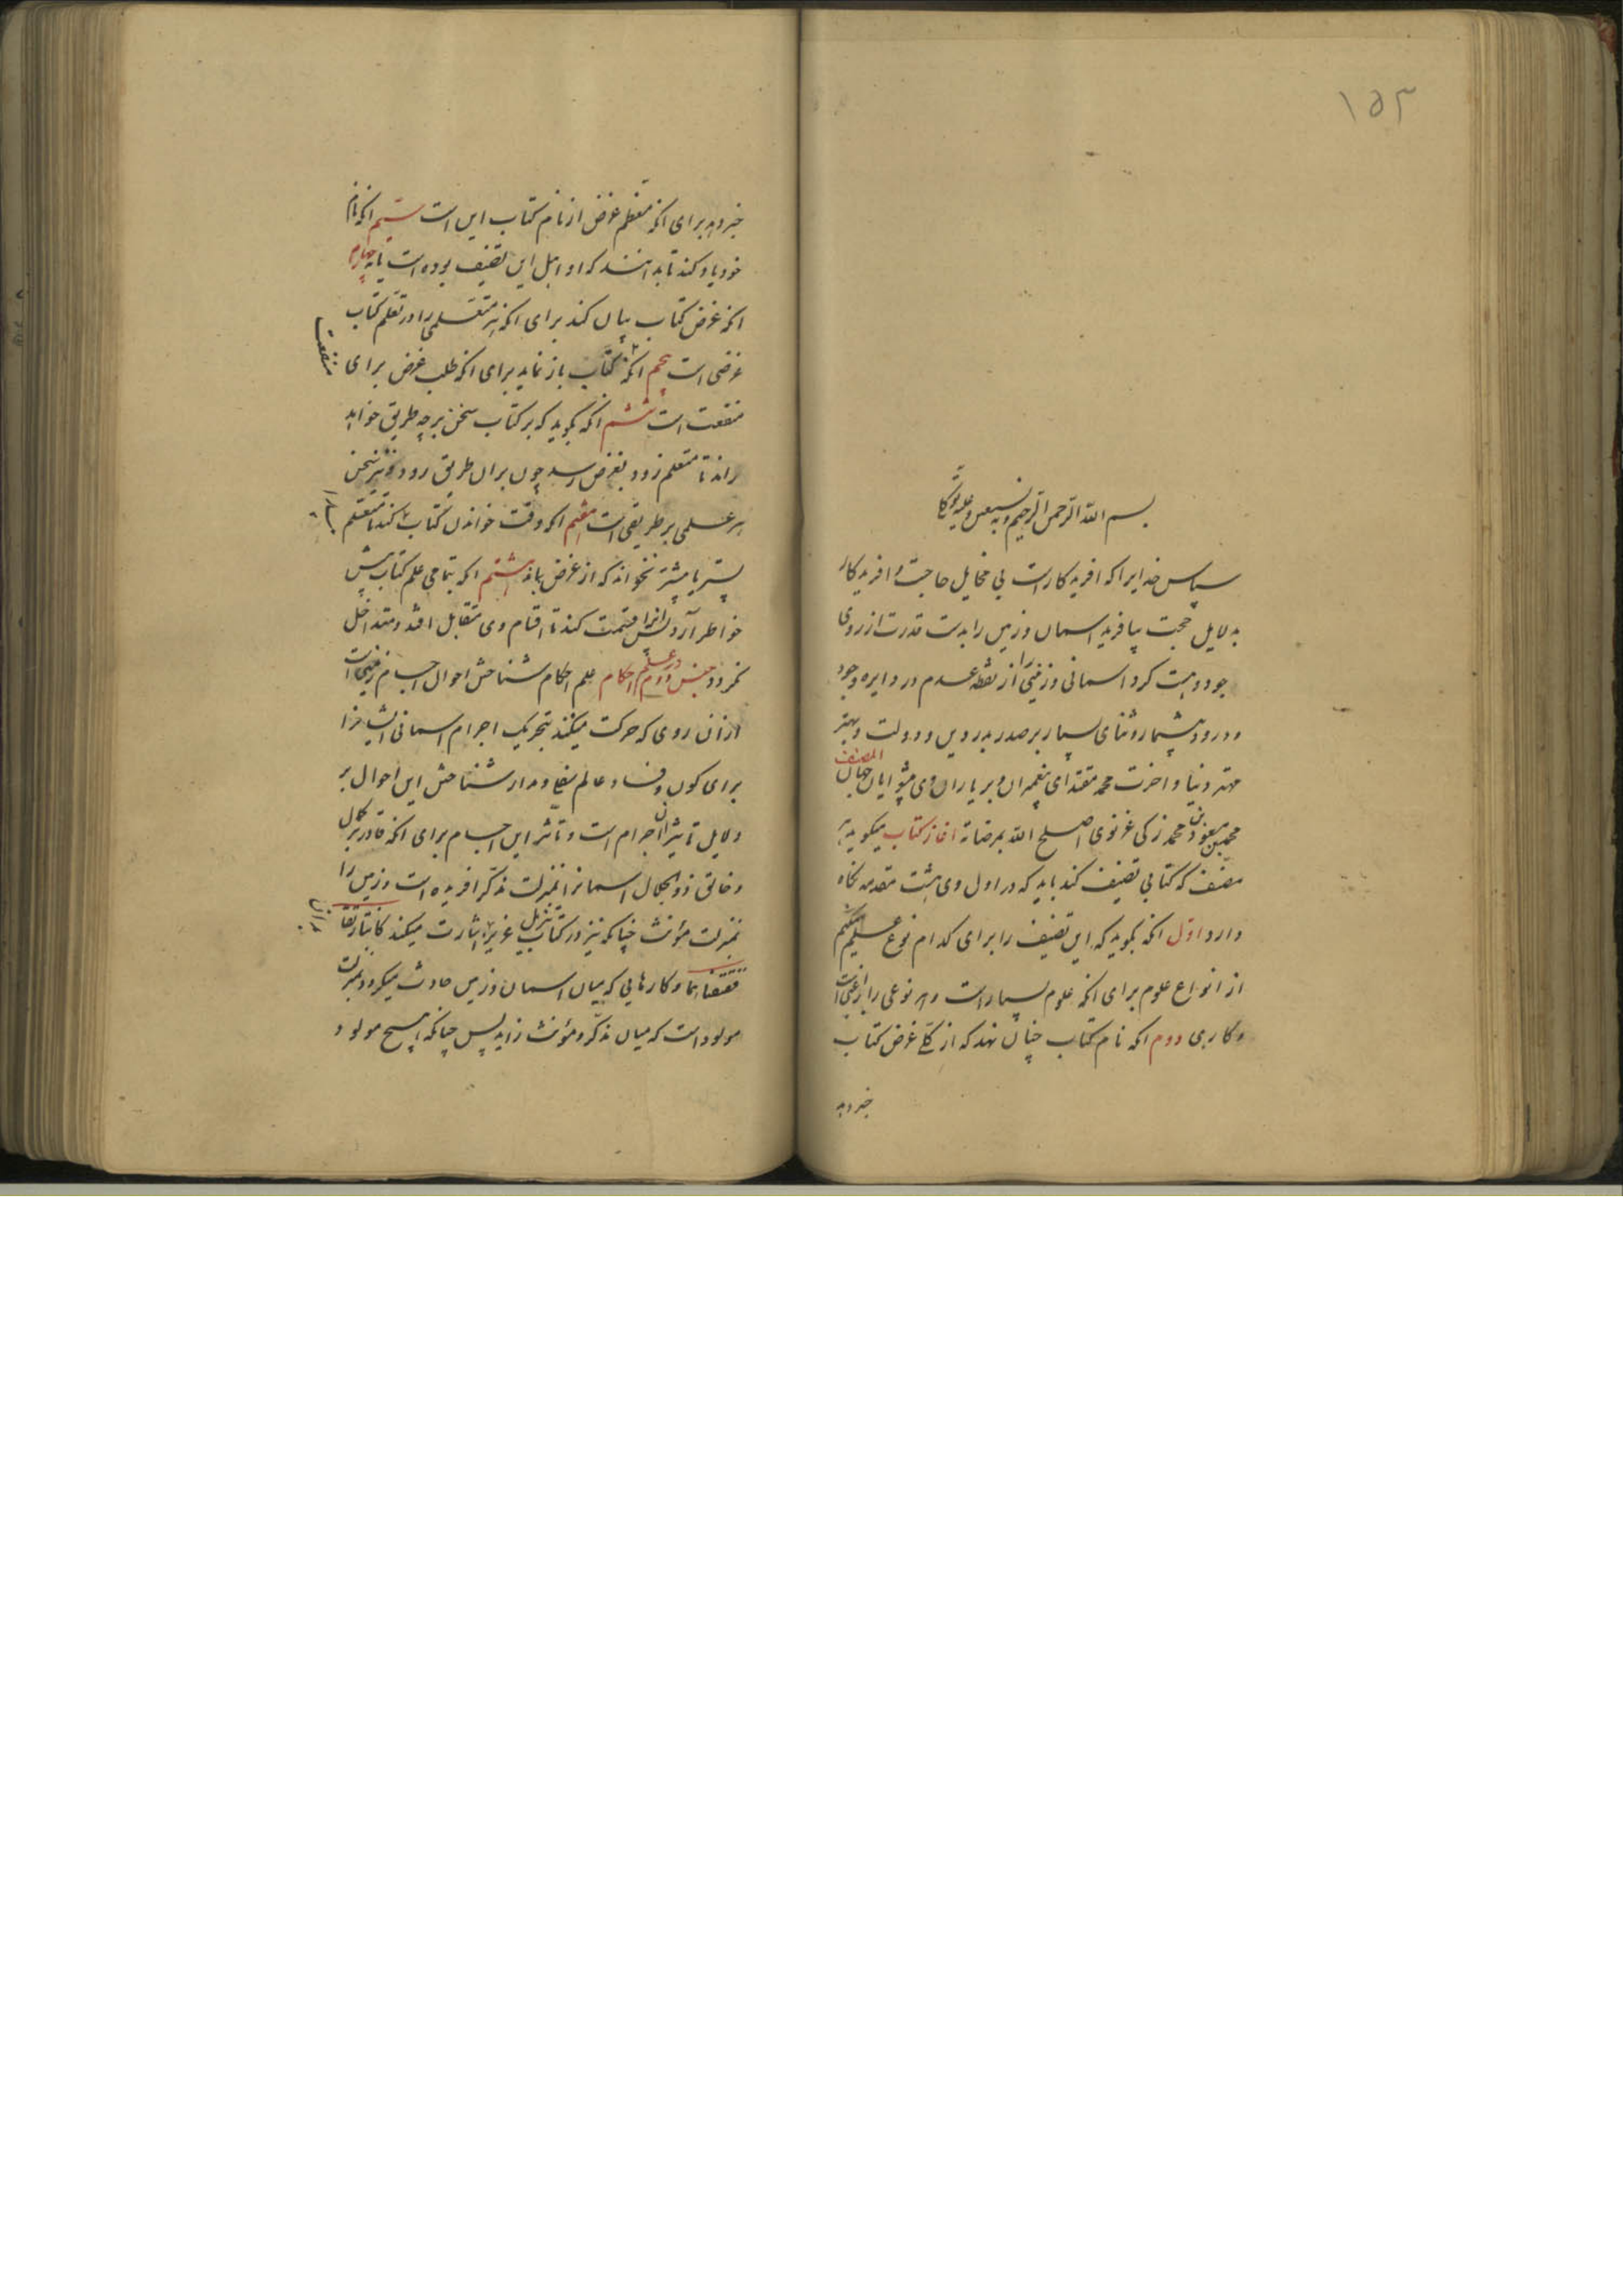 ۱۵۳
بسم الله الرحمن الرحیم وبه نستعین وعلیه توکلنا
سپاس خدایرا که افریدکارست بی مخایل حاجت و افریدکار
بدلایل حجت بیافرید اسمان وزمین را بدست قدرت از روی
جود وهست کرد اسمانی وزمینی را از نقطه عدم در دایره وجود
ودرود بیشمار وثنای بسیار بر صدر بدر دین ودولت وبهتر
مهتر دنیا واخرت محمد مقتدای پیغمبران وبر یاران وی پیشوایان جهان المصنف
محمد بن مسعود بن محمد زکی غزنوی اصلح الله بمرضاته اغاز کتاب میکوید هر
مصنف که کتابی تصنیف کند باید که در اول وی هشت مقدمه نکاه
دارد اول انکه بکوید که این تصنیف را برای کدام نوع علم میکنم
از انواع علوم برای انکه علوم بسیارست وهر نوعی را راغبی است
وکاری دوم انکه نام کتاب چنان نهد که از کلی غرض کتاب
خبر دهد
خبر دهد برای انکه معظم غرض از نام کتاب این است سیم انکه نام
خود یاد کند تا بدانند که او اهل این تصنیف بوده است یا نه چهارم
انکه غرض کتاب بیان کند برای انکه هر متعلمی را در تعلم کتاب
غرضی است پنجم انکه منفعت کتاب باز نماید برای انکه طلب غرض برای
منفعت است ششم انکه بکوید که بر کتاب سخن بر چه طریق خواهد
راند تا متعلم زود بغرض رسد چون بران طریق رود ونیز سخن
هر علمی بر طریقی است هفتم انکه وقت خواندن کتاب کند تا متعلم
پستر یا پیشتر نخواند که از غرض بماند هشتم انکه بتمامی علم کتاب پیش
خواطر آرد پس انرا قسمت کند تا اقسام وی متقابل افتد ومتداخل
نکردد جنس دوم در علم احکام علم احکام شناختن احوال اجسام زمینی است
ازان روی که حرکت میکنند بتحریک اجرام اسمانی ایشانرا
برای کون وفساد عالم سفلی ومدار شناختن این احوال بر
دلایل تاثیر ان اجرام است وتاثر این اجسام برای انکه قادر بر کمال
وخالق ذوالجلال اسمانرا بمنزلت مذکر افریده است وزمین را
بمنزلت مؤنث چنانکه نیز در کتاب تنزیل عزیز اشارت میکند کانتا رتقا
ففتقناهما وکارهایی که میان اسمان وزمین حادث میکردد بمنزلت
مولود است که میان مذکر ومؤنث زاید پس چنانکه هیچ مولود